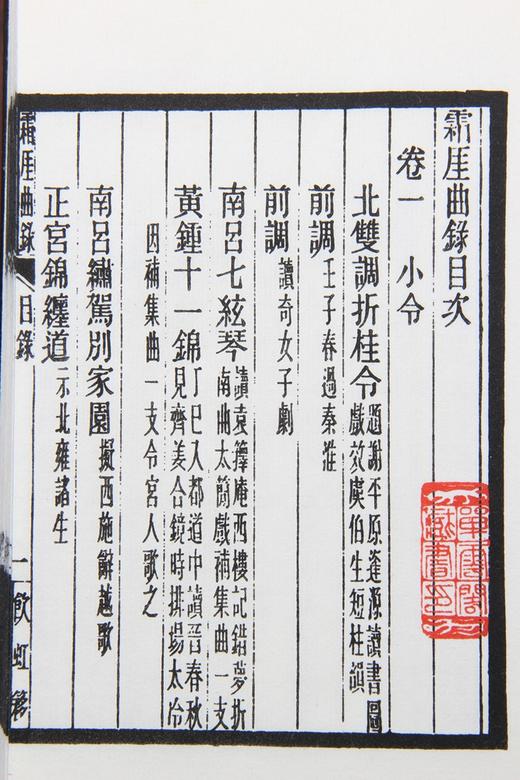 霜厓曲錄目次
卷一 小令
北雙調折桂令 題謝平原逢源讀書圖
戲效虞伯生短柱韻
前調 壬子春過秦淮
前調 讀奇女子劇
南呂七絃琴 讀袁籜庵西樓記錯夢折
南曲太簡戲補集曲一支
黃鍾十一錦 丁巳入都道中讀晉春秋
見齊姜合鏡時排場太冷
因補集曲一支令宮人歌之
南呂繡駕別家園 擬西施辭越歌
正宮錦纏道 示北雍諸生
霜厓曲錄 目錄 一 飲虹簃